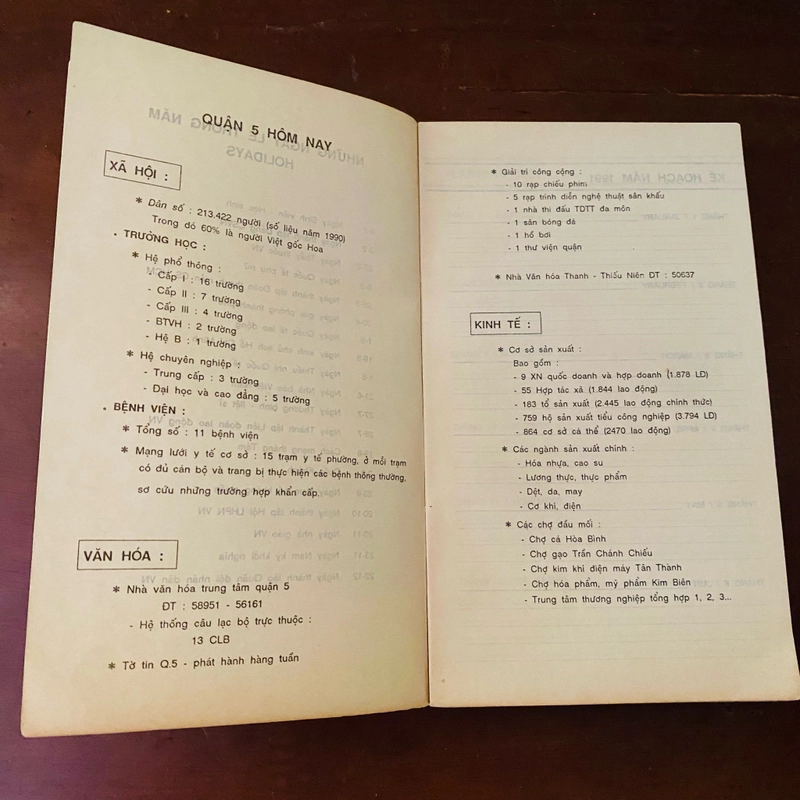 QUẬN 5 HÔM NAY
XÃ HỘI :
* Dân số : 213.422 người (số liệu năm 1990)
Trong đó 60% là người Việt gốc Hoa
. TRƯỜNG HỌC :
* Hệ phổ thông :
- Cấp I : 16 trường
- Cấp II : 7 trường
- Cấp III : 4 trường
- BTVH : 2 trường
- Hệ B : 1 trường
* Hệ chuyên nghiệp :
- Trung cấp : 3 trường
- Đại học và cao đẳng : 5 trường
. BỆNH VIỆN :
* Tổng số : 11 bệnh viện
* Mạng lưới y tế cơ sở : 15 trạm y tế phường, ở mỗi trạm
có đủ cán bộ và trang bị thực hiện các bệnh thông thường,
sơ cứu những trường hợp khẩn cấp.
VĂN HÓA :
* Nhà văn hóa trung tâm quận 5
ĐT : 58951 - 56161
- Hệ thống câu lạc bộ trực thuộc :
13 CLB
* Tờ tin Q.5 - phát hành hàng tuần
* Giải trí công cộng :
- 10 rạp chiếu phim
- 5 rạp trình diễn nghệ thuật sân khấu
- 1 nhà thi đấu TDTT đa môn
- 1 sân bóng đá
- 1 hồ bơi
- 1 thư viện quận
* Nhà Văn hóa Thanh - Thiếu Niên DT : 50637
KINH TẾ :
* Cơ sở sản xuất :
Bao gồm :
- 9 XN quốc doanh và hợp doanh (1.878 LD)
- 55 Hợp tác xã (1.844 lao động)
- 183 tổ sản xuất (2.445 lao động chính thức)
- 759 hộ sản xuất tiểu công nghiệp (3.794 LD)
- 864 cơ sở cá thể (2470 lao động)
* Các ngành sản xuất chính :
- Hóa nhựa, cao su
- Lương thực, thực phẩm
- Dệt, da, may
- Cơ khí, điện
* Các chợ đầu mối :
- Chợ cá Hòa Bình
- Chợ gạo Trần Chánh Chiếu
- Chợ kim khí điện máy Tân Thành
- Chợ hóa phẩm, mỹ phẩm Kim Biên
- Trung tâm thương nghiệp tổng hợp 1, 2, 3...